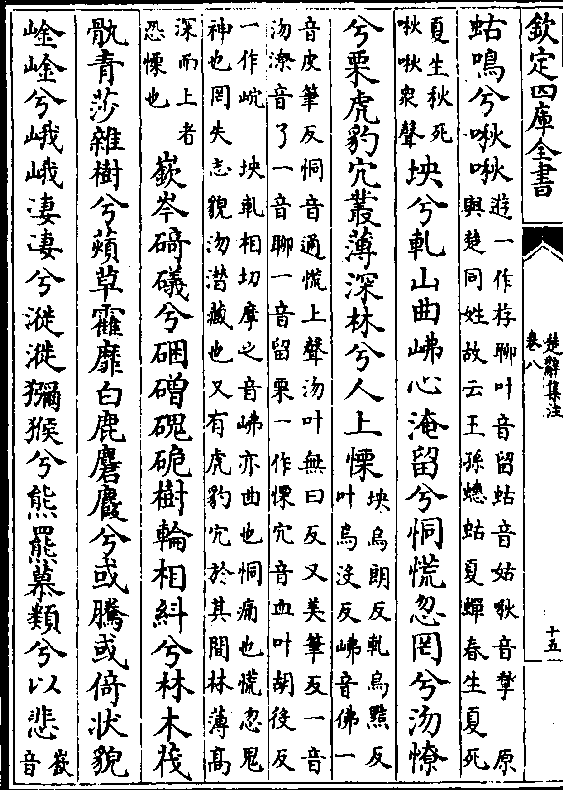 欽定四庫全書
楚辭集注
卷八
十五
蛄鳴兮啾啾遊一作存聊叶音留蛄音姑啾音揫 原
與楚同姓故云王孫蟪蛄夏蟬春生夏死
夏生秋死
啾啾衆聲
坱兮軋山曲岪心淹留兮恫慌忽罔兮沕憭
兮栗虎豹穴叢薄深林兮人上慄坱烏朗反軋烏黠反
叶烏没反岪音佛一
音皮筆反恫音通慌上聲沕叶無曰反又美筆反一音
沕潦音了一音聊一音留栗一作慄穴音血叶胡役反
一作岤 坱軋相切摩之音岪亦曲也恫痛也慌忽鬼
神也罔失志貌沕潜藏也又有虎豹穴於其間林薄高
深而上者
恐慄也
嶔岑碕礒兮硱磳磈硊樹輪相糾兮林木茷
骫青莎雜樹兮薠草靃靡白鹿麏麚兮或騰或倚状貌
崯崯兮峨峨淒淒兮漇漇獼猴兮熊羆慕類兮以悲嶔
音